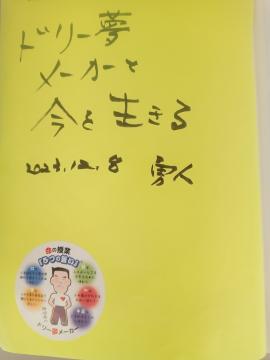 ドリー夢
メーカーと
今を生きる
2023.12.8 勇人
命の授業
「5つの誓い」
ドリー夢メーカー